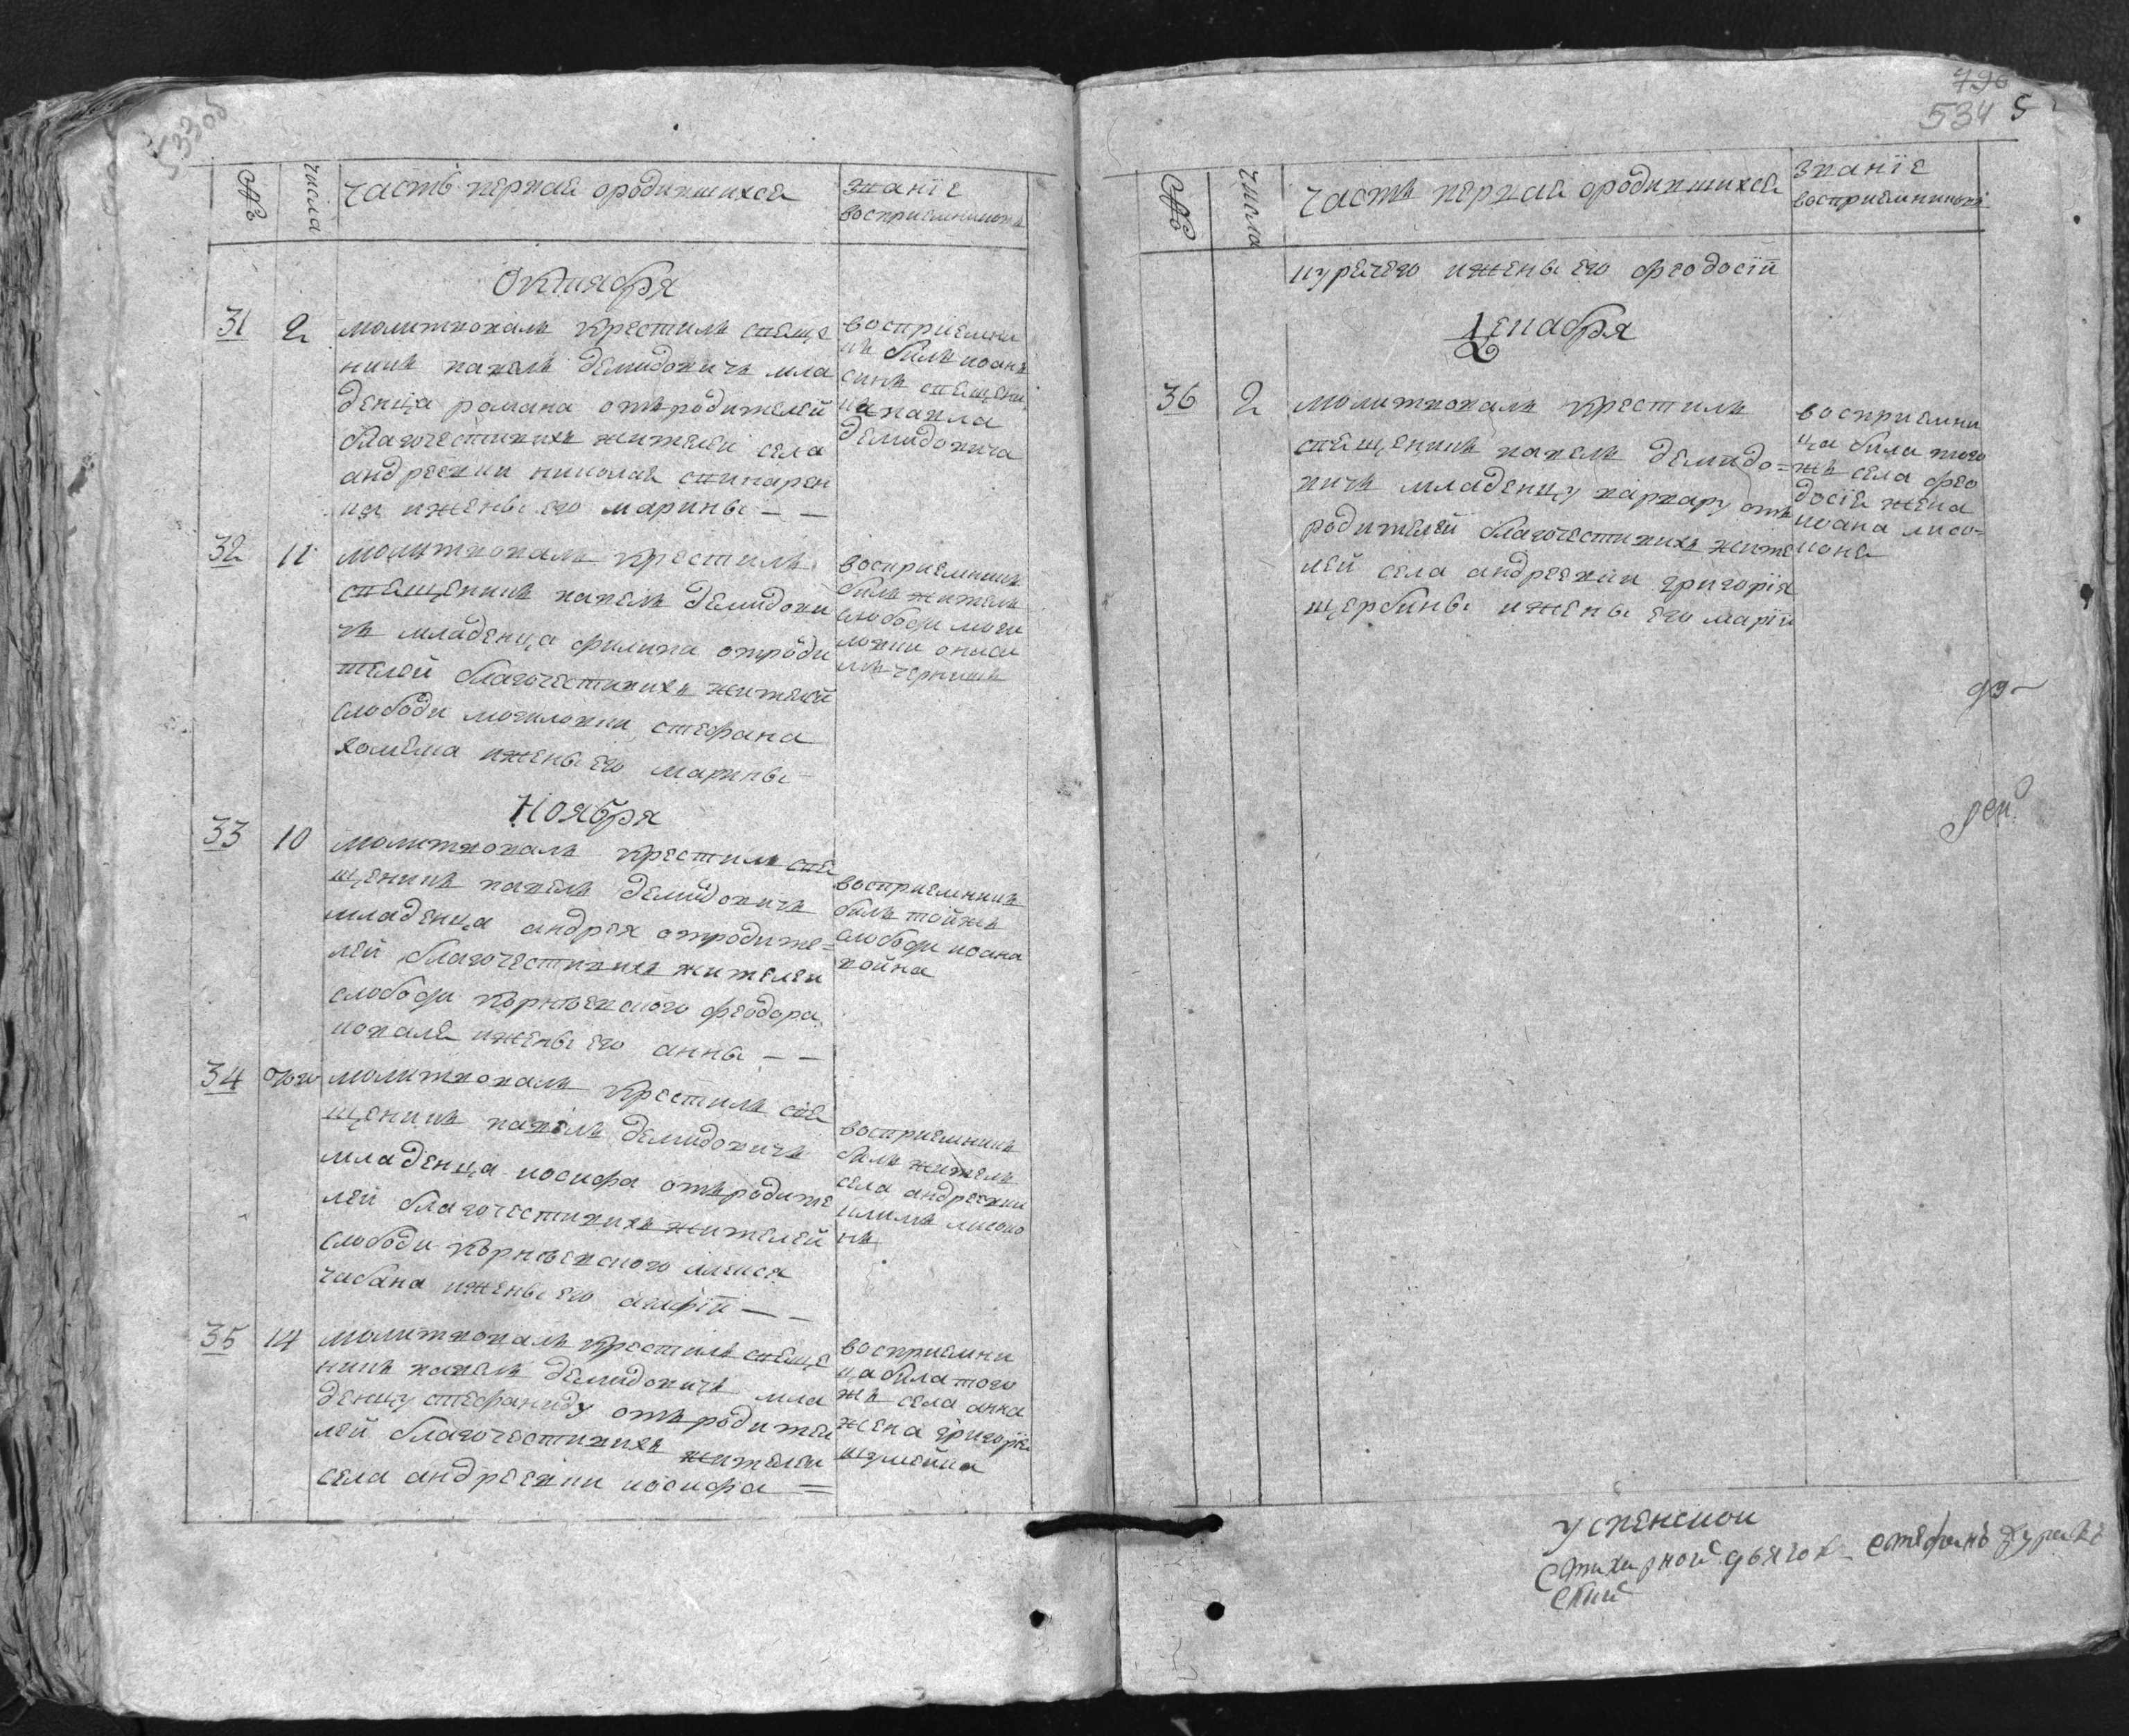 533об
№
числа
часть первая ородившихся
знаніе
восприемниковъ
Октября
31
2
молитвовалъ крестилъ свяще
никъ павелъ демидовичъ мла
денца романа отъродителей
благочестивихъ жителей села
андреевки николая
ижены его марины — —
восприемни
къ билъ иоанъ
синъ священи
ка павла
демидовича
32
11
молитвовалъ крестилъ
священикъ павелъ демидови
чъ младенца филипа отроди
телей благочестивихъ жителей
слободи могиловки стефана
хомека ижены его марины —
восприемникъ
билъ житель
слободи моги
ловки
Ноября
33
10
молитвовалъ крестилъ свя
щеникъ павелъ демидовичъ
младенца андрея отродите=
лей благочестивихъ жителей
слободи корнѣевского феодора
коваля ижены его анны — —
восприемникъ
билъ тойже
слободи иоана
война
34
молитвовалъ крестилъ свя
щеникъ павелъ демидовичъ
младенца иосифа отъродите
лей благочестивихъ жителей
слободи корнѣевского
чабана ижены его агафіи — —
восприемникъ
билъ житель
села андреевки
климъ лисоко
нъ
35
14
молитвовалъ крестилъ свяще
никъ павелъ демидовичъ мла
денцу стефаниду отъродите
лей благочестивихъ жителей
села андреевки иосифа =
восприемни
ца била того
жъ села анна
жена григорія
шулейка
496
534
5
№
числа
часть первая ородившихся
знаніе
восприемниковъ
курячего ижены его феодосіи
Декабря
36
2
молитвовалъ крестилъ
священикъ павелъ демидо=
вичъ младенцу варвару отъ
родителей благочестивихъ жите
лей села андреевки григорія
щербины ижены его маріи
восприемни
ца била того
жъ села фео
досія жена
иоана лисо=
кона
дя~
рей
успенской
стихарной дьячок стефанъ
ский